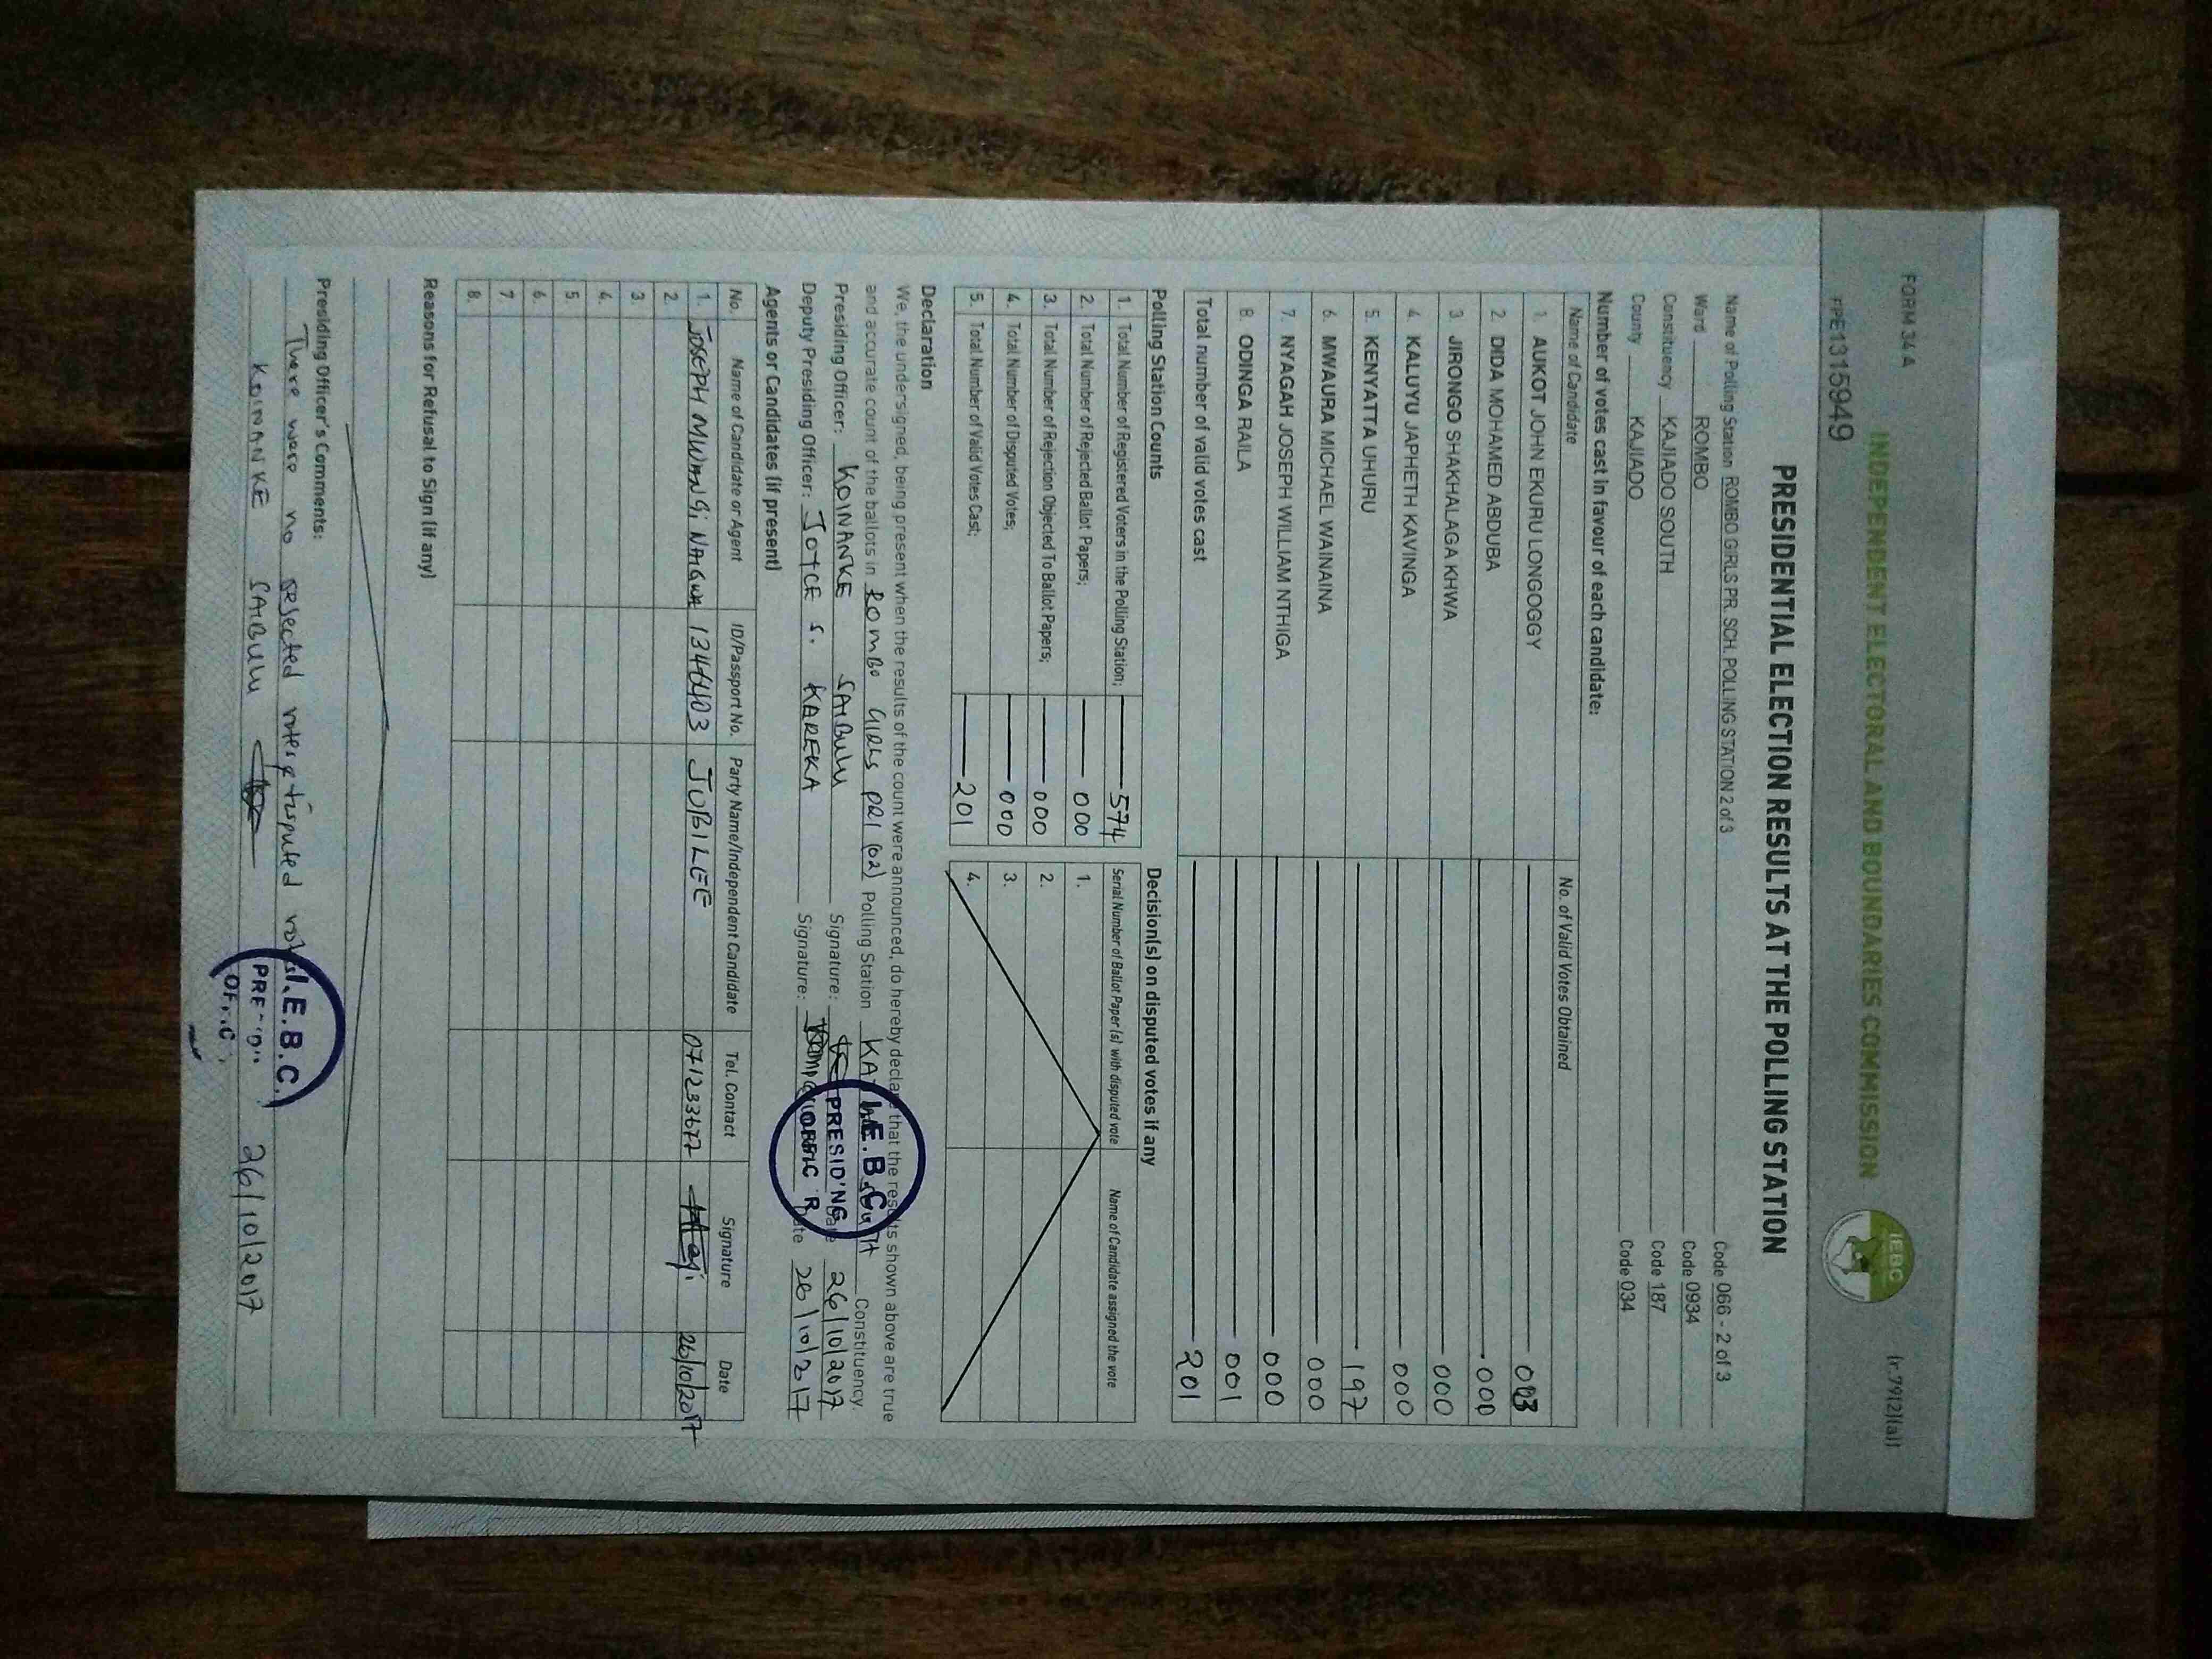 FORM 34 A
(r.79(2)(a))
INDEPENDENT ELECTORAL AND BOUNDARIES COMMISSION
IEBC
PPE1315949
PRESIDENTIAL ELECTION RESULTS AT THE POLLING STATION
Name of Polling Station ROMBO GIRLS PR. SCH. POLLING STATION 2 of 3 Code 066 - 2 of 3
Ward ROMBO Code 0934
Constituency KAJIADO SOUTH Code 187
County KAJIADO Code 034
Number of votes cast in favour of each candidate:
Name of Candidate No. of Valid Votes Obtained
1. AUKOT JOHN EKURU LONGOGGY 003
2. DIDA MOHAMED ABDUBA 000
3. JIRONGO SHAKHALAGA KHWA 000
4. KALUYU JAPHETH KAVINGA 000
5. KENYATTA UHURU 197
6. MWAURA MICHAEL WAINAINA 000
7. NYAGAH JOSEPH WILLIAM NTHIGA 000
8. ODINGA RAILA 001
Total number of valid votes cast 201
Polling Station Counts
1. Total Number of Registered Voters in the Polling Station; 574
2. Total Number of Rejected Ballot Papers; 000
3. Total Number of Rejection Objected To Ballot Papers; 000
4. Total Number of Disputed Votes; 000
5. Total Number of Valid Votes Cast; 201
Decision(s) on disputed votes if any
Serial Number of Ballot Paper (s) with disputed vote Name of Candidate assigned the vote
1.
2.
3.
4.
Declaration
We, the undersigned, being present when the results of the count were announced, do hereby declare that the results shown above are true
and accurate count of the ballots in ROMBO GIRLS PRI (02) Polling Station Constituency.
Presiding Officer: KOINANKE SAIBULU Signature: Date 26/10/2017
Deputy Presiding Officer: JOYCE S. KAREKA Signature: Date 26/10/2017
I.E.B.C
PRESIDING
OFFICER
Agents or Candidates (if present)
No. Name of Candidate or Agent ID/Passport No. Party Name/Independent Candidate Tel. Contact Signature Date
1. JOSEPH MWANGI 13464403 JUBILEE 071233677 26/10/2017
2.
3.
4.
5.
6.
7.
8.
Reasons for Refusal to Sign (if any)
Presiding Officer's Comments:
There were no rejected votes disputed votes
KOINANKE SAIBULU 26/10/2017
I.E.B.C.